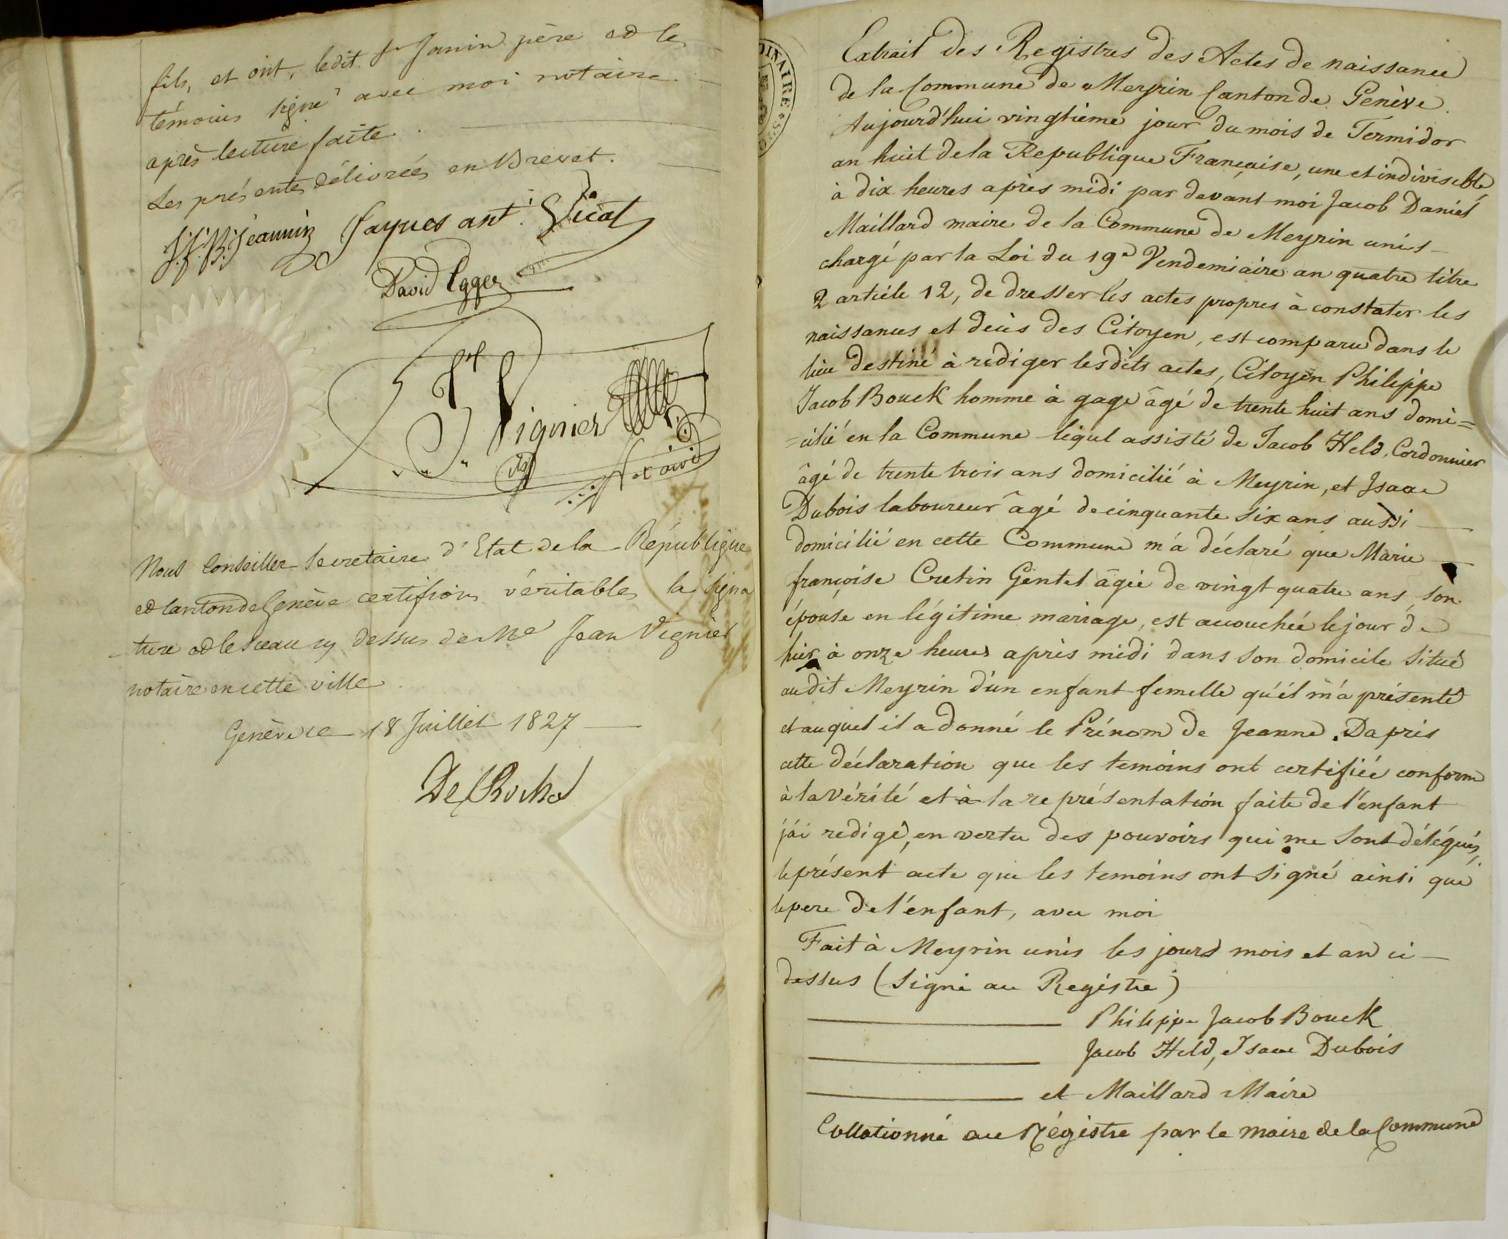 fils, et ont, ledit Sr Janin père et les
témoins signé avec moi notaire
après lecture faite.
Les présentes délivrées en Brevet.
J. F. B. Jeannin Jaques ant. Vicat
David Egger
Jn Vignier
Notaire
Nous Conseiller Secretaire d'Etat de la République
et Canton de Genève certifions véritables la signa
ture et le sceau cy dessus de Me Jean Vignier
notaire en cette ville
Genève ce 18 Juillet 1827
De Roches
DINAIRE
Extrait des Registres des Actes de naissance
de la Commune de Meyrin Canton de Genève.
Aujourd'hui vingtième jour du mois de Termidor
an huit de la Republique Française, une et indivisible
à dix heures après midi par devant moi Jacob Daniel
Maillard maire de la Commune de Meyrin unis
chargé par la Loi du 19e Vendemiaire an quatre titre
2 artićle 12, de dresser les actes propres à constater les
naissances et decès des Citoyen, est comparu dans le
lieu destiné à rédiger les dits actes, Citoyen Philippe
Jacob Bouck homme à gage âgé de trente huit ans domi=
=cilié en la Commune lequel assisté de Jacob Held, Cordonnier
âgé de trente trois ans domicilié à Meyrin, et Isaac
Dubois laboureur âgé de cinquante six ans aussi
domicilié en cette Commune m'a déclaré que Marie
françoise Cretin Gentel âgée de vingt quatre ans son
épouse en légitime mariage, est accouchée le jour de
hier à onze heures après midi dans son domicile situé
au dit Meyrin d'un enfant femelle qu'il m'a présenté
et auquel il a donné le Prénom de Jeanne. Dapris
cette déclaration que les temoins ont certifiée conforme
à la vérité et à la représentation faite de l'enfant
j'ai redigé, en vertu des pouvoirs qui me sont délégués,
le présent acte que les temoins ont signé ainsi que
le pere de l'enfant, avec moi
Fait à Meyrin unis les jours mois et an ci
dessus (Signé au Registre)
Philippe Jacob Bouck
Jacob Held, Isaac Dubois
et Maillard Maire
Collationné au Régistre par le maire de la Commune